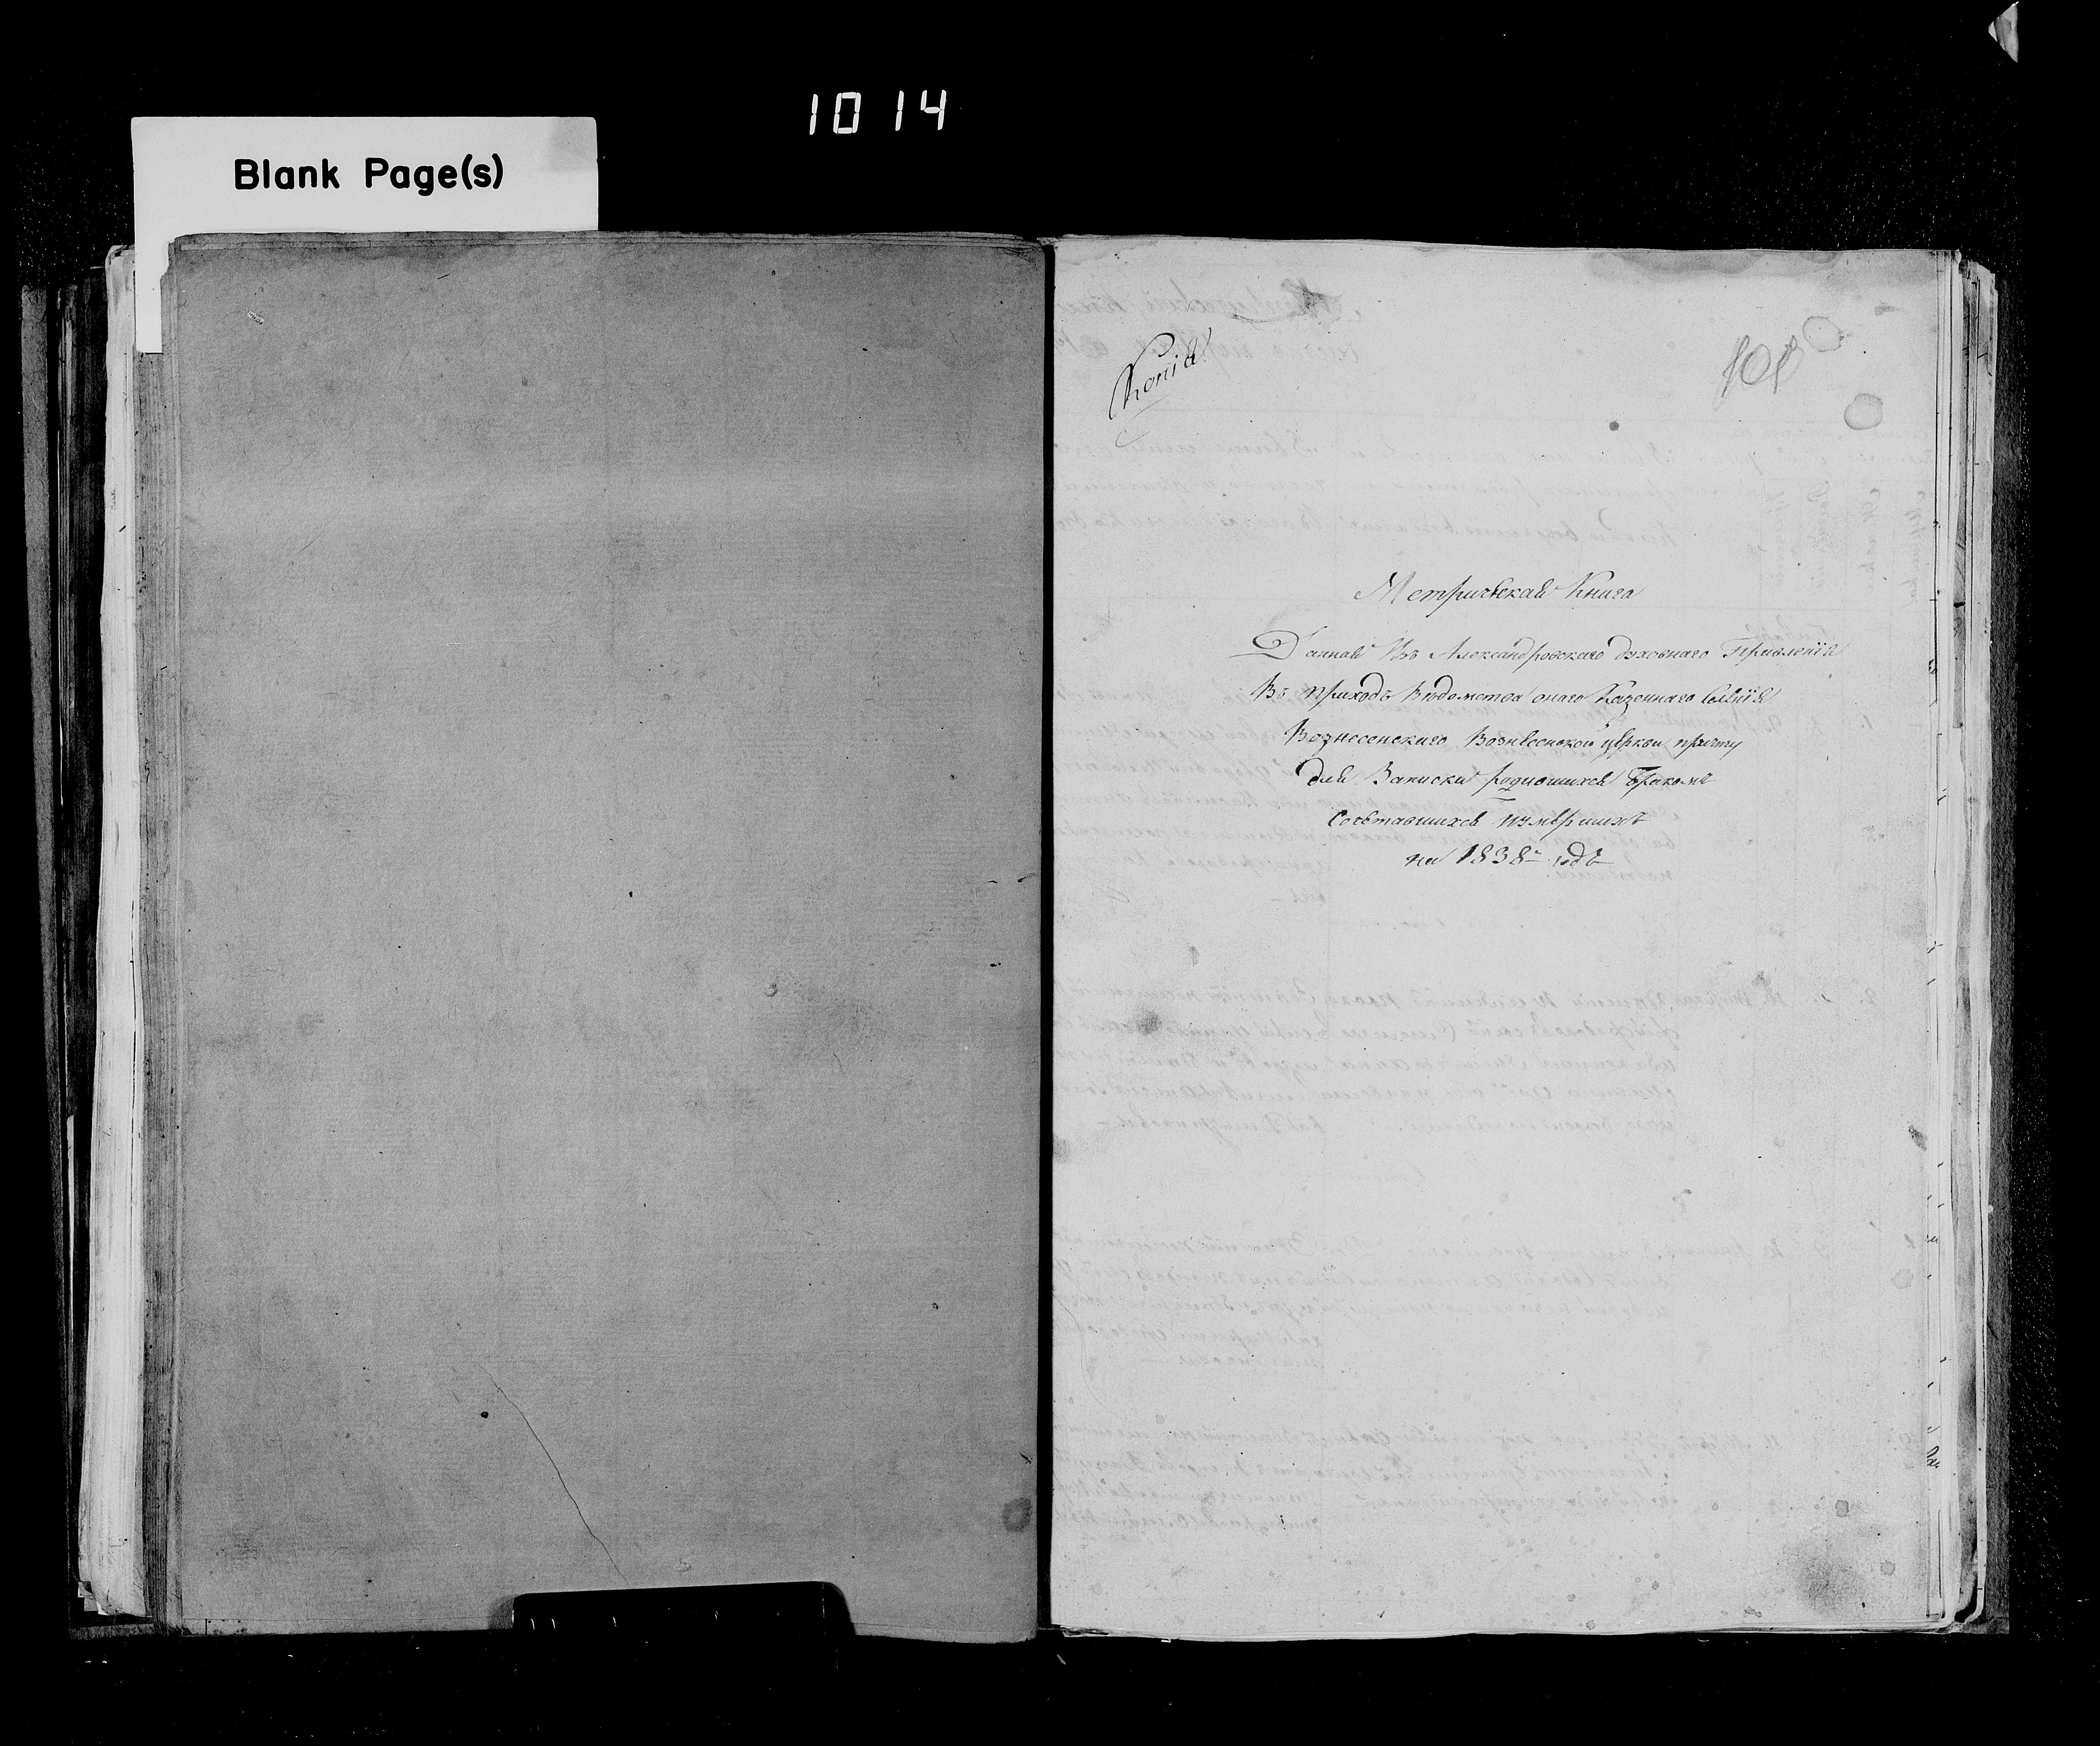 1014
Blank Page(s)
Копія
101
Метрическая Книга
Данная Изъ Александровскаго духовнаго Правленія
Въ приходъ Вѣдомства онаго Казеннаго Селенія
Вознесенскаго Вознесенской церкви причту
для Записки родившихся бракомъ
Сочетавшихся и умершихъ
на 1838й годъ